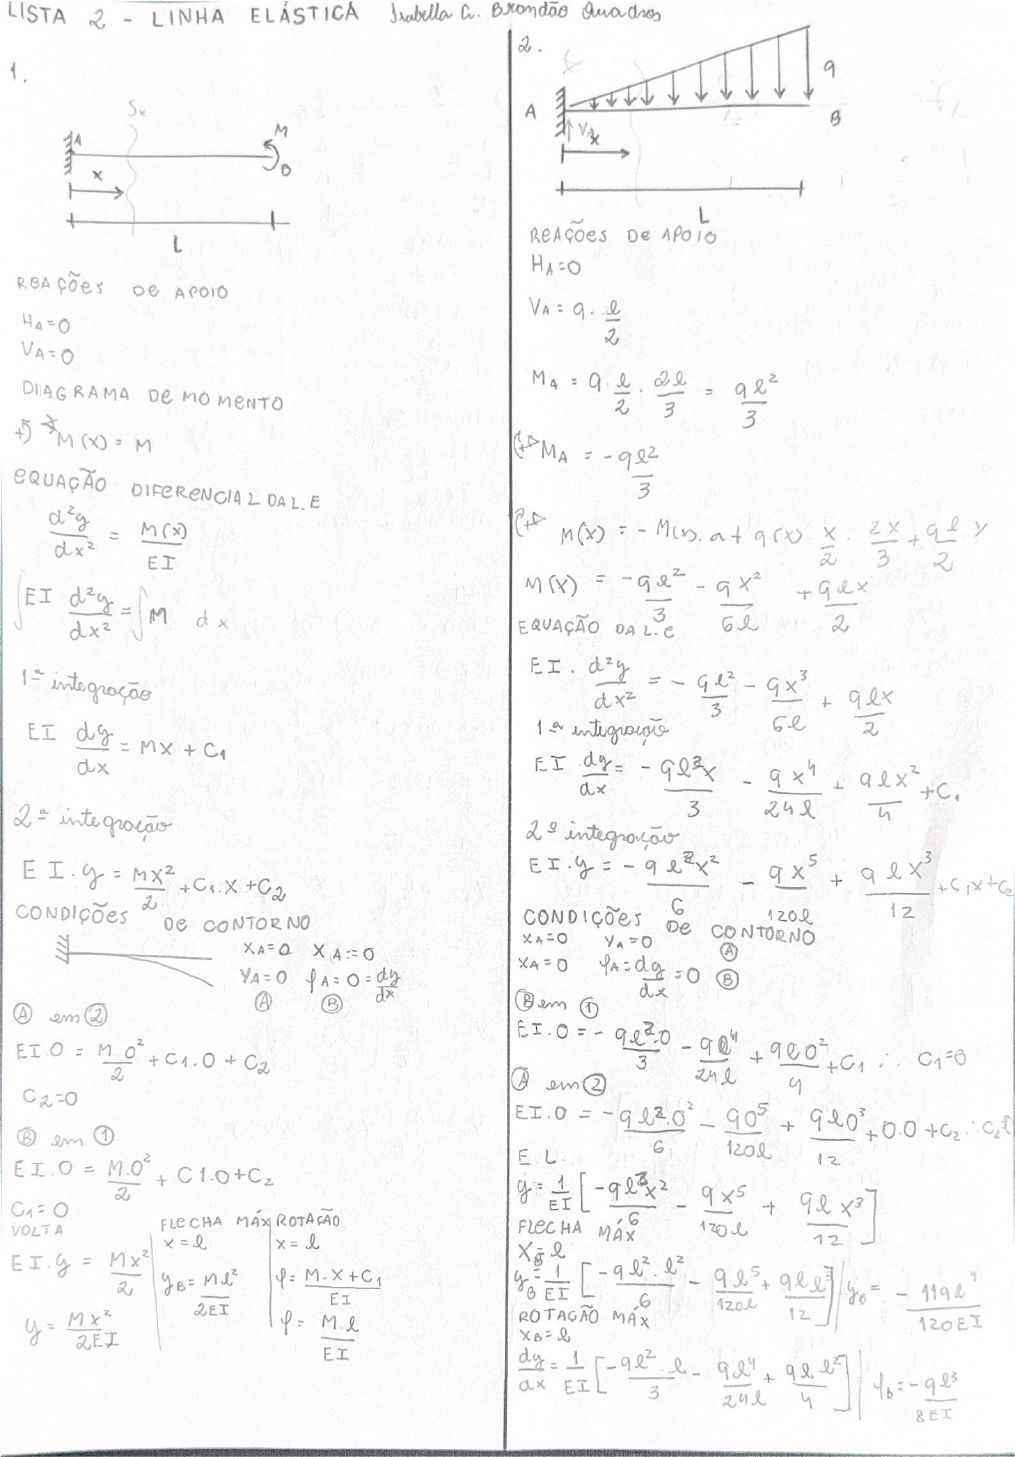 LISTA 2 - LINHA ELÁSTICA Isabella G. Brandão Quadros
1.
Sx
A
M
B
x
L
REAÇÕES DE APOIO
HA=0
VA=0
DIAGRAMA DE MOMENTO
+) M(x) = M
EQUAÇÃO DIFERENCIAL DA L.E
d²y/dx² = M(x)/EI
∫EI d²y/dx² = ∫M dx
1ª integração
EI dy/dx = Mx + C1
2ª integração
EI.y = Mx²/2 + C1.x + C2
CONDIÇÕES DE CONTORNO
XA=0 XA:=0
YA=0 φA=0=dy/dx
Ⓐ Ⓑ
Ⓐ em ②
EI.0 = M.0²/2 + C1.0 + C2
C2=0
Ⓑ em ①
EI.0 = M.0²/2 + C1.0 + C2
C1=0
VOLTA
EI.y = Mx²/2
y = Mx²/2EI
FLECHA MÁX
x=l
yB = Ml²/2EI
ROTAÇÃO
x=l
φ = M.x+C1/EI
φ = M.l/EI
2.
q
A
VA
B
x
L
REAÇÕES DE APOIO
HA=0
VA = q.l/2
MA = q.l/2 . 2l/3 = ql²/3
(+ MA = -ql²/3
(+ M(x) = -M(x).a + q(x) x/2 . 2x/3 + ql/2 . x
M(x) = -ql²/3 - qx²/6l + qlx/2
EQUAÇÃO DA L.E
EI. d²y/dx² = -ql²/3 - qx³/6l + qlx/2
1ª integração
EI dy/dx = -ql²x/3 - qx⁴/24l + qlx²/4 + C1
2º integração
EI.y = -ql²x²/6 - qx⁵/120l + qlx³/12 + C1x + C2
CONDIÇÕES DE CONTORNO
XA=0 YA=0 Ⓐ
XA=0 φA=dy/dx=0 Ⓑ
Ⓑ em ①
EI.0 = -ql².0/3 - q0⁴/24l + ql0²/4 + C1 ∴ C1=0
Ⓐ em ②
EI.0 = -ql².0²/6 - q0⁵/120l + ql0³/12 + 0.0 + C2 ∴ C2
E.L.
y = 1/EI [-ql²x²/6 - qx⁵/120l + qlx³/12]
FLECHA MÁX
XB=l
yB = 1/EI [-ql².l²/6 - ql⁵/120l + qll³/12] yB = -11ql⁴/120EI
ROTAÇÃO MÁX
XB=l
dy/dx = 1/EI [-ql².l/3 - ql⁴/24l + ql l²/4] φB = -ql³/8EI